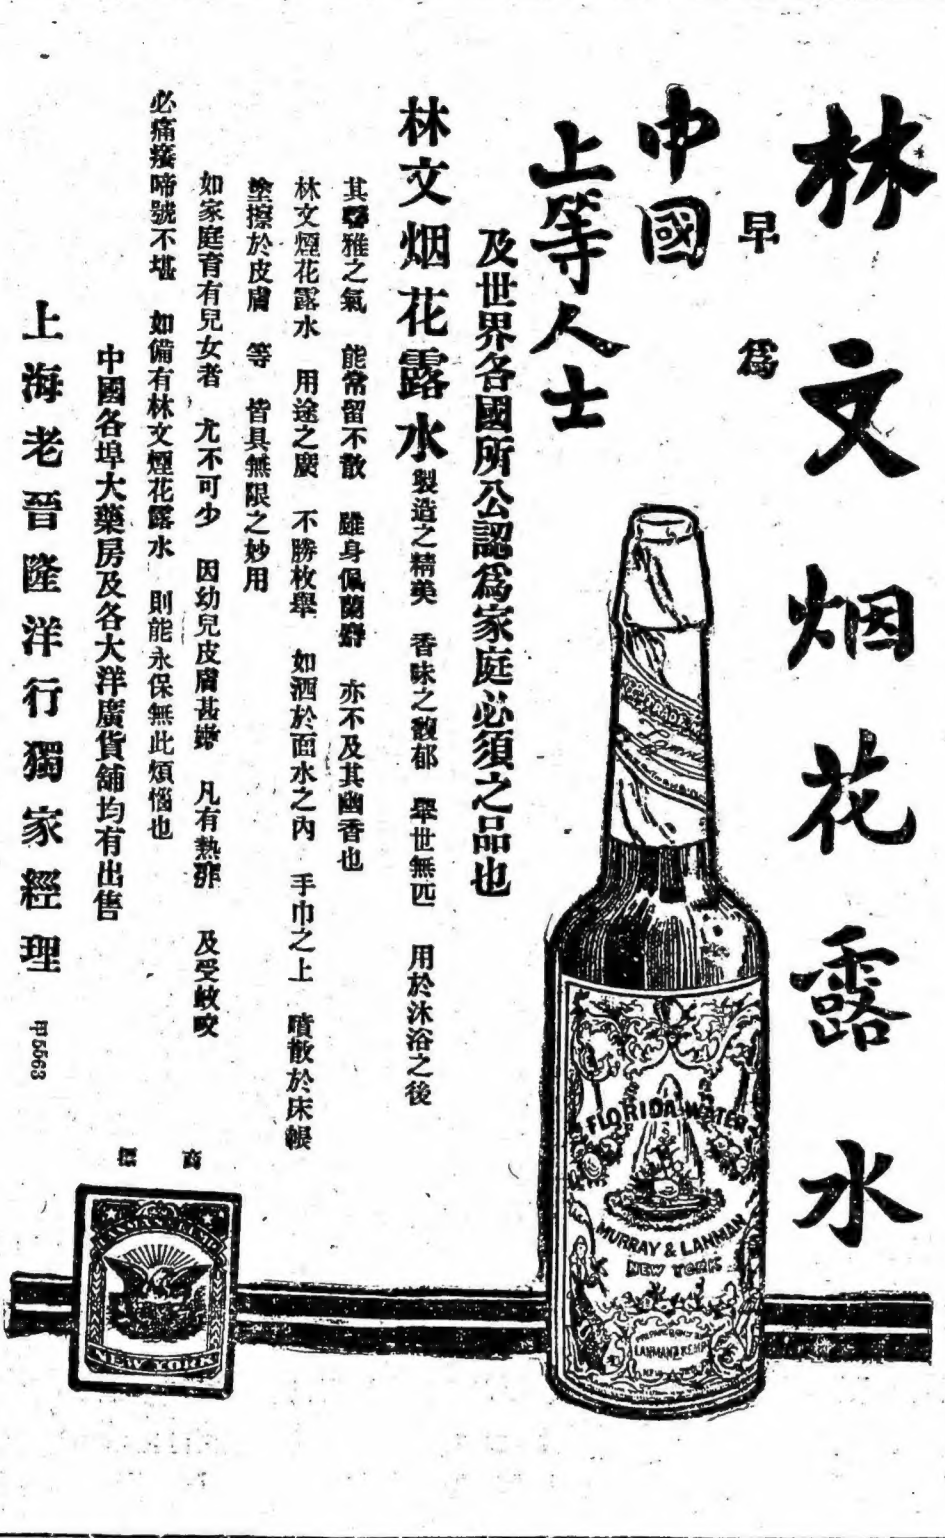 林文烟花露水
早為
中國
上等人士
及世界各國所公認為家庭必須之品也
林文烟花露水製造之精美 香味之馥郁 舉世無匹 用於沐浴之後
其馨雅之氣 能常留不散 雖身佩蘭麝 亦不及其幽香也
林文煙花露水 用途之廣 不勝枚舉 如洒於面水之內 手巾之上 噴散於床帳
塗擦於皮膚 等 皆具無限之妙用
如家庭育有兒女者 尤不可少 因幼兒皮膚甚嫩 凡有熱痱 及受蚊咬
必痛癢啼號不堪 如備有林文煙花露水 則能永保無此煩惱也
中國各埠大藥房及各大洋廣貨舖均有出售
上海老晉隆洋行獨家經理
甲5563
商標
LANMAN & KEMP
NEW YORK
FLORIDA WATER
MURRAY & LANMAN
NEW YORK
PREPARED ONLY BY
LANMAN & KEMP
NEW YORK